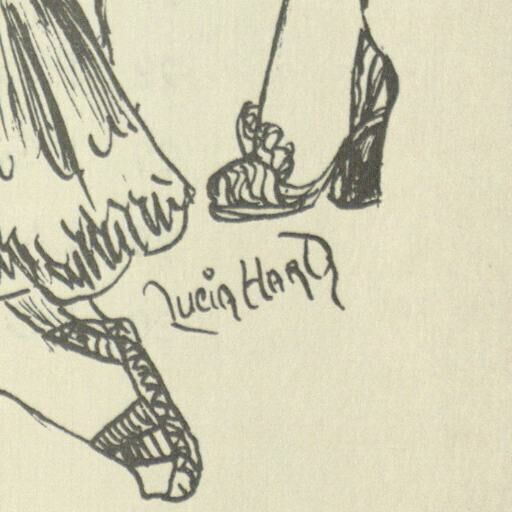 Lucia HARD